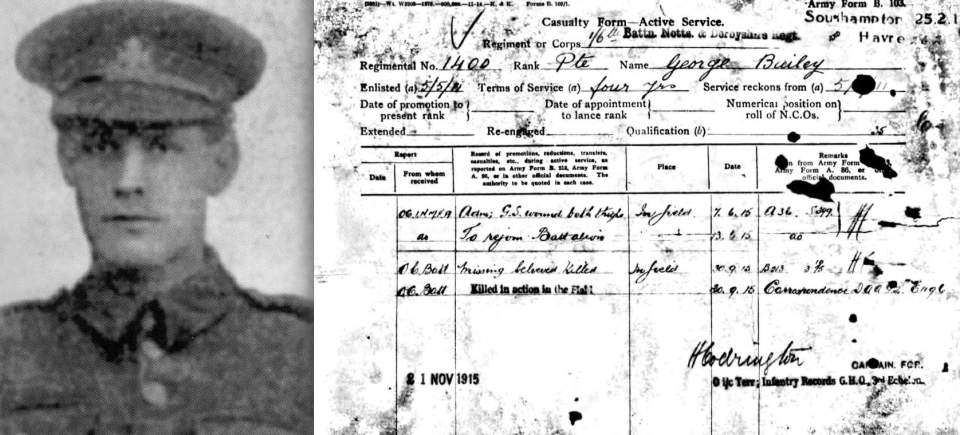 Army Form B. 103.
Casualty Form—Active Service.
Southampton 25.2.1
Regiment or Corps 1/6th Battn. Notts. & Derbyshire Regt. Havre
Regimental No. 1400 Rank Pte Name George Bailey
Enlisted (a) 5/5/11 Terms of Service (a) four yrs Service reckons from (a) 5/
Date of promotion to present rank } Date of appointment to lance rank } Numerical position on roll of N.C.Os. }
Extended Re-engaged Qualification (b)
Report
Date
From whom received
Record of promotions, reductions, transfers,
casualties, etc., during active service, as
reported on Army Form B. 213, Army Form
A. 36, or in other official documents. The
authority to be quoted in each case.
Place
Date
Remarks
from Army Form
Army Form A. 36, or
official documents.
Adm; G.S. wound both thighs In field 7.6.15 A36
do To rejoin Battalion 13.6.15 do
O.C. Batt Missing believed killed In field 30.9.15 B213
O.C. Batt Killed in action in the Field 30.9.15 Correspondence
H Codrington
21 NOV 1915
CAPTAIN. FOR
O i/c Terr; Infantry Records G.H.Q., 3rd Echelon.